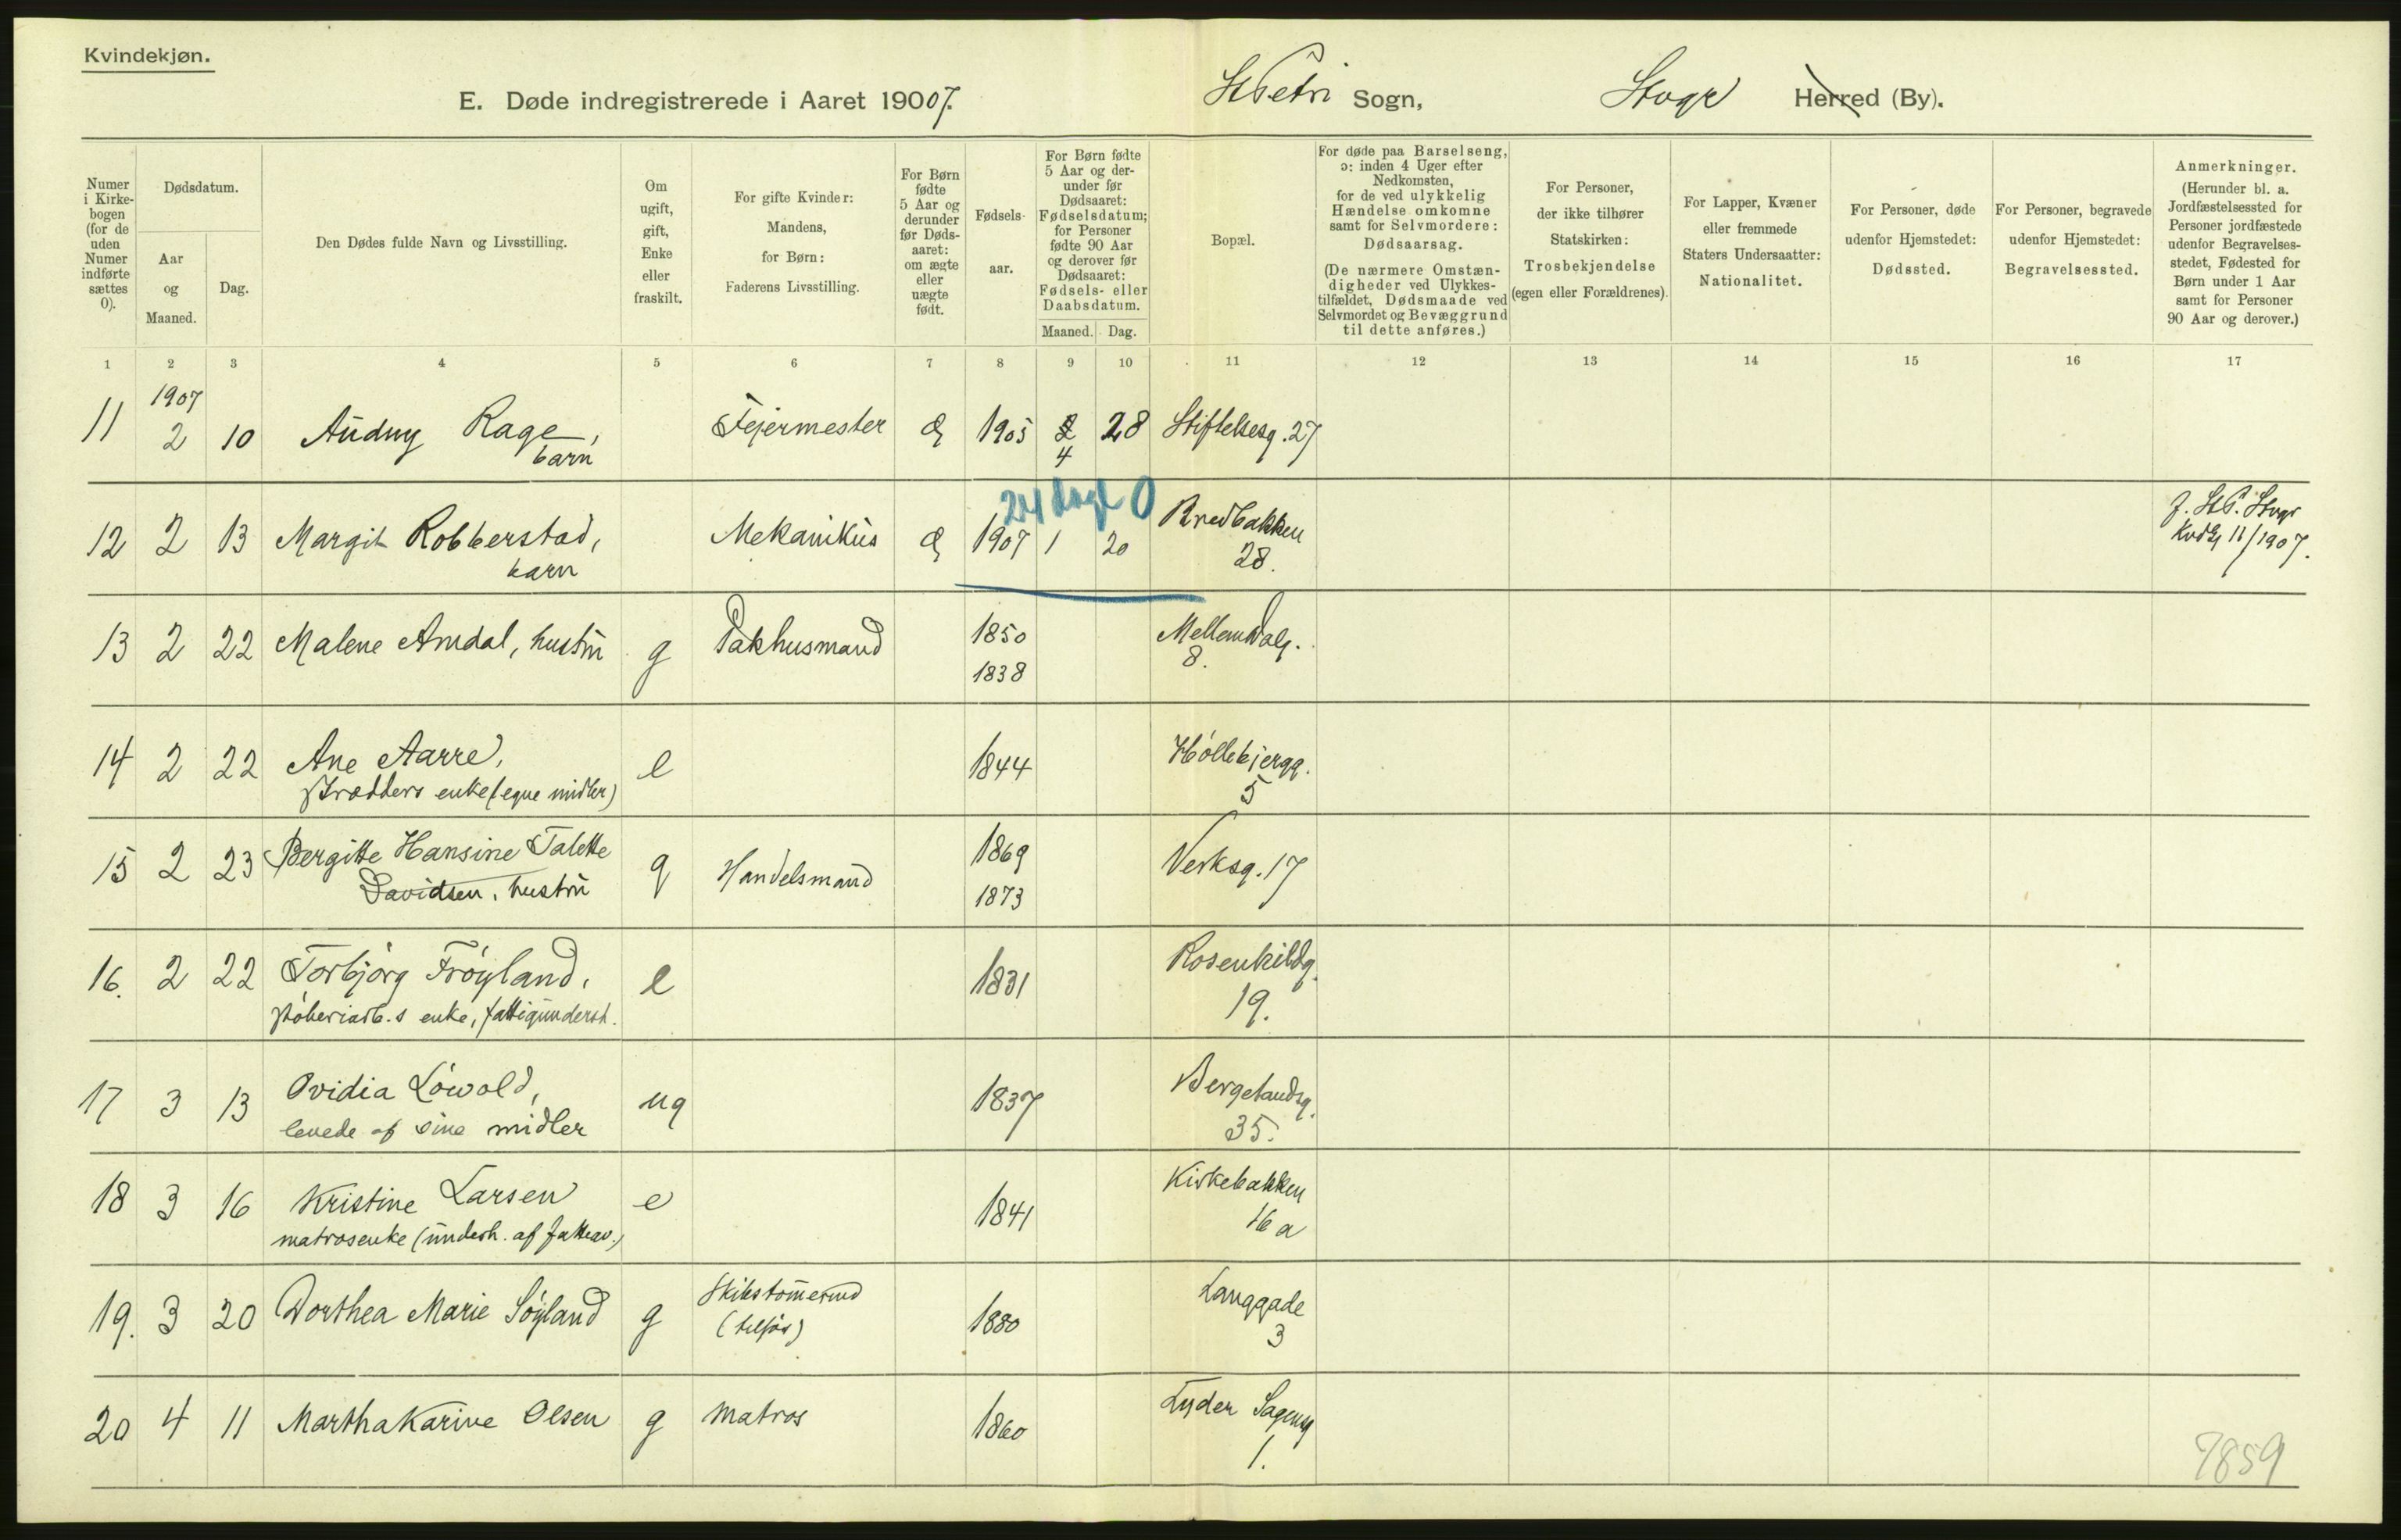 Kvindekjøn.
E. Døde indregistrerede i Aaret 1907.
St Petri Sogn, Stvgr Herred (By).
Numer i Kirke-bogen (for de uden Numer indførte sættes 0).
Dødsdatum.
Aar og Maaned.
Dag.
Den Dødes fulde Navn og Livsstilling.
Om ugift, gift, Enke eller fraskilt.
For gifte Kvinder: Mandens, for Børn: Faderens Livsstilling.
For Børn fødte 5 Aar og derunder før Døds-aaret: om ægte eller uægte født.
Fødsels-aar.
For Børn fødte 5 Aar og der-under før Dødsaaret: Fødselsdatum; for Personer fødte 90 Aar og derover før Dødsaaret: Fødsels- eller Daabsdatum.
Maaned. Dag.
Bopæl.
For døde paa Barselseng, ɔ: inden 4 Uger efter Nedkomsten, for de ved ulykkelig Hændelse omkomne samt for Selvmordere: Dødsaarsag.
(De nærmere Omstæn-digheder ved Ulykkes-tilfældet, Dødsmaade ved Selvmordet og Bevæggrund til dette anføres.)
For Personer, der ikke tilhører Statskirken: Trosbekjendelse (egen eller Forældrenes).
For Lapper, Kvæner eller fremmede Staters Undersaatter: Nationalitet.
For Personer, døde udenfor Hjemstedet: Dødssted.
For Personer, begravede udenfor Hjemstedet: Begravelsessted.
Anmerkninger.
(Herunder bl. a. Jordfæstelsessted for Personer jordfæstede udenfor Begravelses-stedet, Fødested for Børn under 1 Aar samt for Personer 90 Aar og derover.)
1 2 3 4 5 6 7 8 9 10 11 12 13 14 15 16 17
1907
11 2 10 Audny Rage, Fejermester Æ 1905 2 28 Stiftelsesg. 27
barn 4
24 dage 0
12 2 13 Margit Robberstad, Mekanikus Æ 1907 1 20 Bredbakken 28.
barn
f. St P. Stvgr
13 2 22 Malene Amdal, hustru g Pakhusmand 1850 Mellem
1838 8.
14 2 22 Ane Aarre, e 1844 Höllebjergg.
enke (egne midler) 5
15 2 23 Bergitte Hansine Talette g Handelsmand 1869 Verksg. 17
Davidsen, hustru 1873
16. 2 22 Torbjörg Fröyland, e 1831 Rosenkildg.
støberiarb.s enke, fattigunderst. 19.
17 3 13 Ovidia Löwold, ug 1837 Bergelandsg.
levede af sine midler 35.
18 3 16 Kristine Larsen e 1841 Kirkebakken
matrosenke (underh. af fattigv.) 16 a
19. 3 20 Dorthea Marie Söyland g Skibstömmermd 1880 Langgade
(tilsjøs) 3
20 4 11 Martha Karine Olsen g Matros 1860 Lyder Sagensg
1.
7859